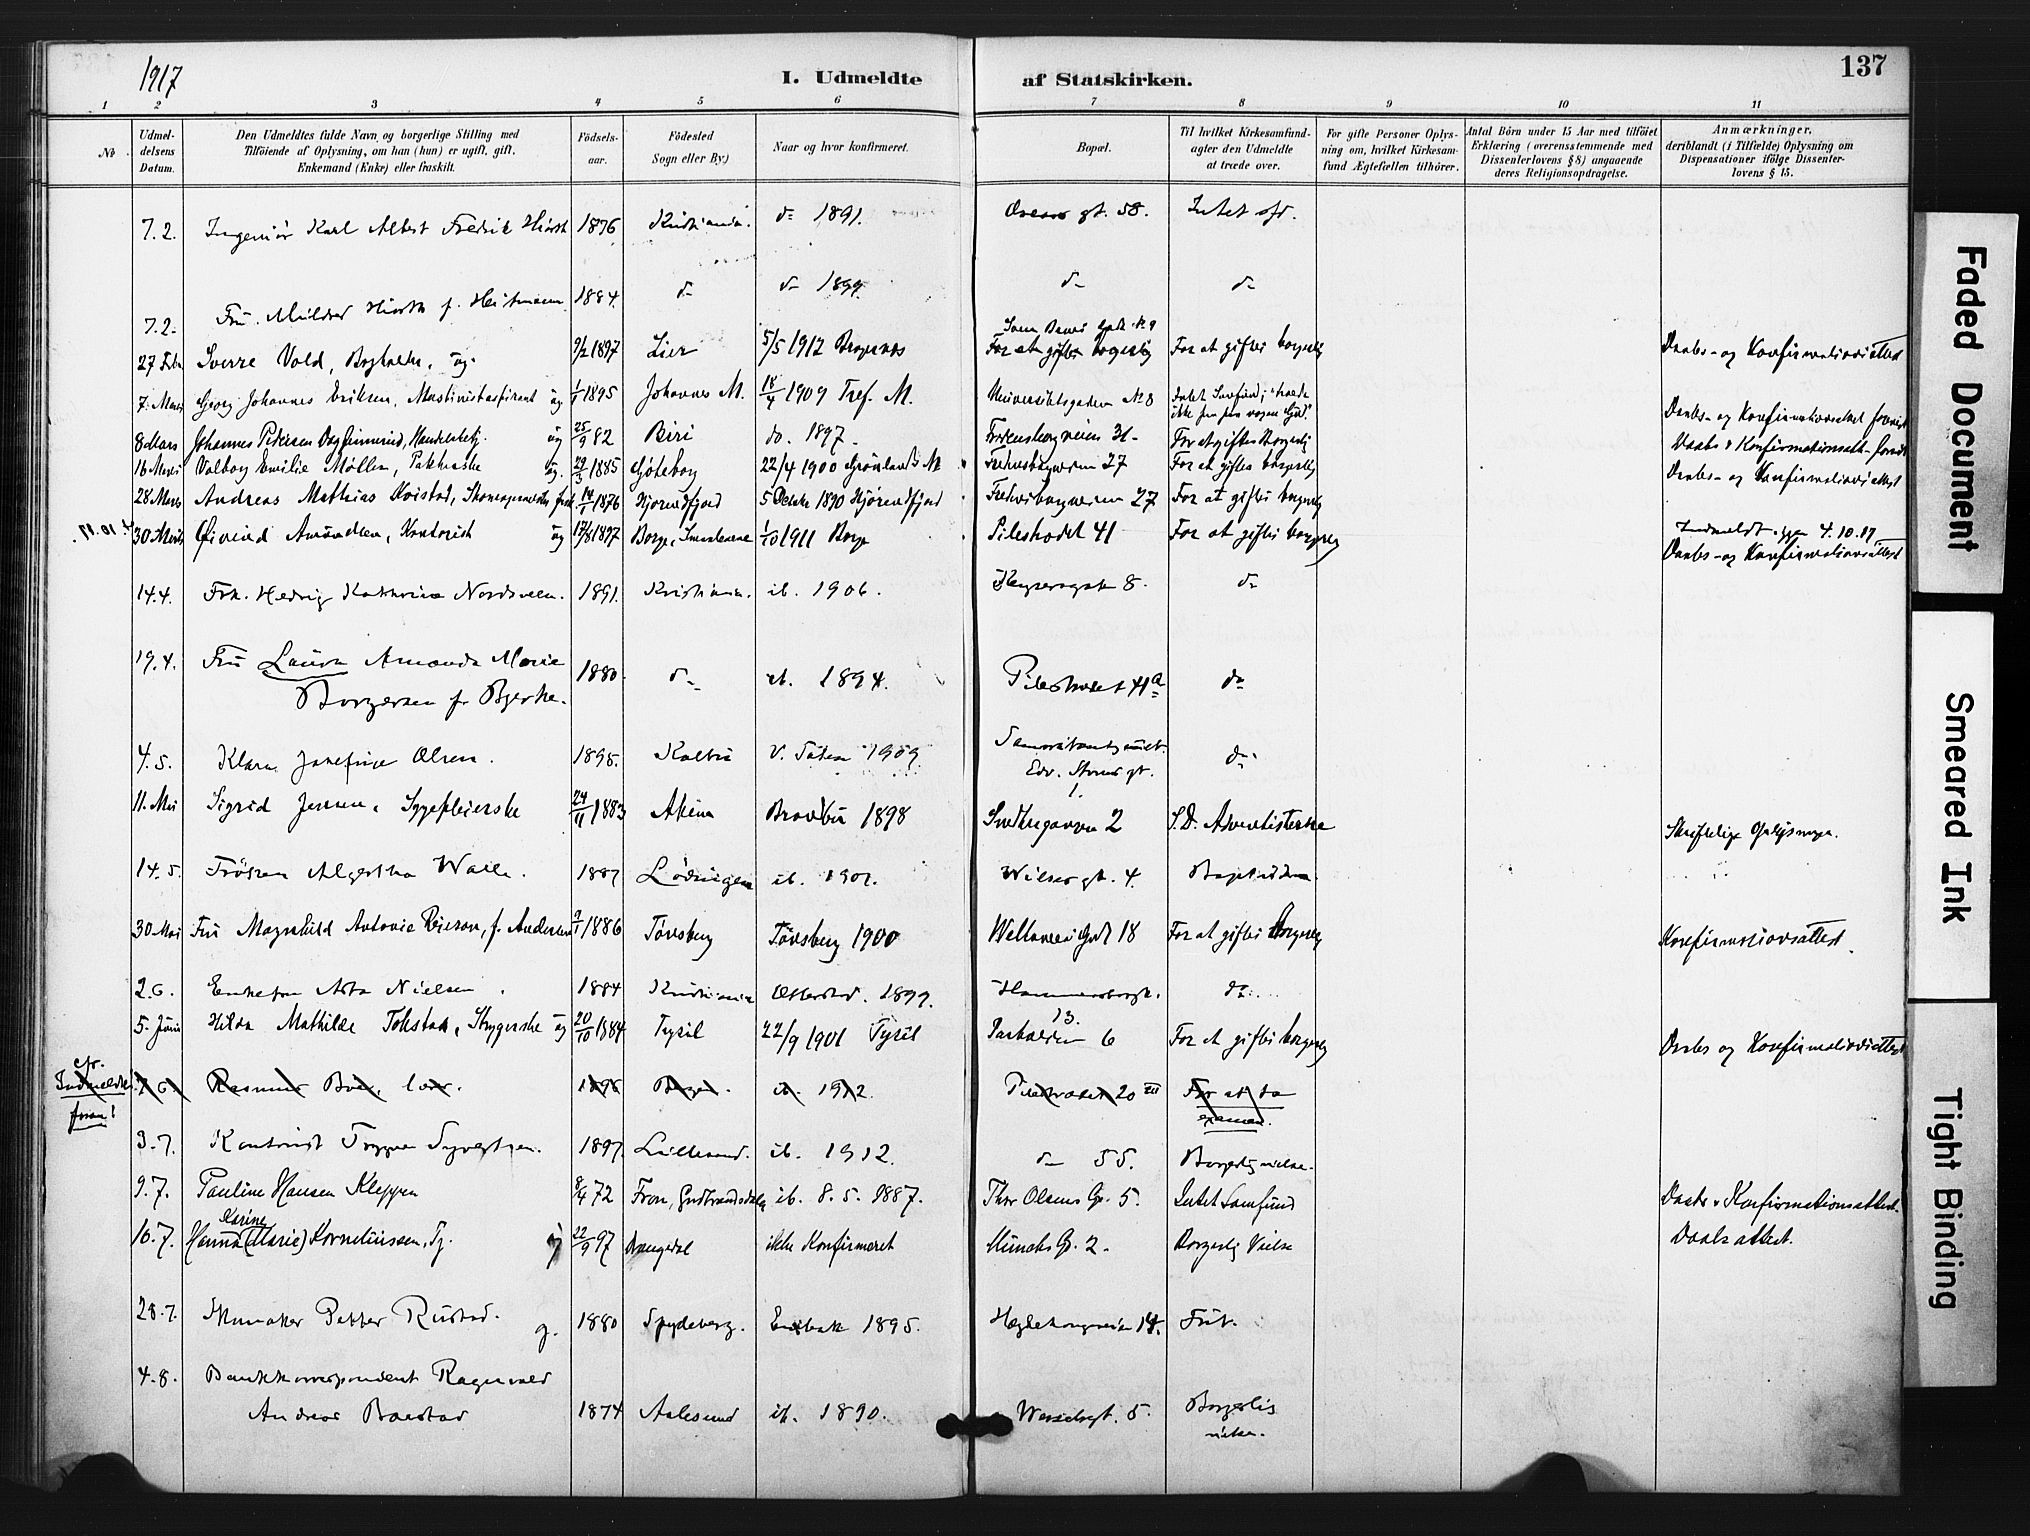 1917
I. Udmeldte af Statskirken.
137
1 2 3 4 5 6 7 8 9 10 11
No
Udmel-
delsens
Datum.
Den Udmeldtes fulde Navn og borgerlige Stilling med
Tilföiende af Oplysning, om han (hun) er ugift, gift,
Enkemand (Enke) eller fraskilt.
Födsels-
aar.
Födested
Sogn eller By)
Naar og hvor konfirmeret.
Bopæl.
Til hvilket Kirkesamfund-
agter den Udmeldte
at træde over.
For gifte Personer Oplys-
ning om, hvilket Kirkesam-
fund Ægtefællen tilhörer.
Antal Börn under 15 Aar med tilföiet
Erklæring (overensstemmende med
Dissenterlovens § 8) angaaende
deres Religionsopdragelse.
Anmærkninger,
deriblandt (i Tilfælde) Oplysning om
Dispensationer ifölge Dissenter-
lovens § 15.
7.2. Ingeniör Karl Albert Fredrik Hiorth 1876 Kristiania. do 1891. gt. 58. Intet sfd.
7.2. Fru Mildred Hiorth f. Heitmann 1884. do do 1899. do do
27 Febr Sverre Vold, ug. 9/2 1897 Lier 5/5 1912 Bragernes For at giftes borgerlig For at giftes borgerlig Daabs- og Konfirmationsattest
7. Mars Georg Johannes Eriksen, Maskinistaspirant ug 1/1 1895 Johannes M. 18/4 1909 Tref. M. Universitetsgaden No 8 Intet Samfund;
Daabs- og Konfirmationsattest forevist
8 Mars Johannes Pedersen ug 25/9 82 Biri do. 1897. 31- For at giftes Borgerlig Daabs & Konfirmationsatt. forevist
16 Mars Valborg Emilie Møller, Pakkerske ug. 29/3 1885 Göteborg 22/4 1900 Grönlands M Fredensborgveien 27 For at giftes borgerlig Daabs- og Konfirmationsattest
28 Mars Andreas Mathias Koistad, 14/1 1876 Hjörendfjord 5 Octobr 1890 Hjörendfjord Fredensborgveien 27 For at giftes borgerlig
4.10.17. 30 Mars Øivind Amundsen, Kontorist ug 17/8 1897 Borge, Smaalenene 1/10 1911 Borge Pilestrædet 41 For at giftes borgerlig Indmeldt igjen 4.10.17.
Daabs- og Konfirmationsattest
14.4. Frk. Hedvig Kathrine Nordsveen. 1891. Kristiania. ib. 1906. Keysersgate 8. do
19.4. Fru Laura Amanda Marie
Borgersen f. Bjerke. 1880. do ib. 1894. Pilestrædet 41a do
4.5. Klara Josefine Olsen. 1895. Kolbu V. Toten 1909 Edv. Storms gt.
1. do
11. Mai Sigrid Jensen, Sygepleierske 24/11 1883 Aker 1898 Smedgangen 2 S.D. Adventisterne Skriftlige Oplysninger.
14.5. Fröken Algertha Walle. 1887 Lödingen ib. 1902. Wilses gt. 4. Baptisterne.
30 Mai Fru Magnhild Antonie Reierson, f. Andersen 9/1 1886 Tönsberg Tönsberg 1900 Welhavens Gade 18 For at giftes Borgerlig Konfirmationsattest
2.6. Enkefru Asta Nielsen 1884 Kristiania Otterstad. 1899. Hammersborgt.
13. do.
5. Juni Hilda Mathilde Tokstad, Strygerske ug 20/10 1884 Trysil 22/9 1901 Trysil Parkveien 6 For at giftes borgerlig Daabs og Konfirmationsattest
cfr.
Indmeldte
foran! 2.6. Rasmus Boe, lær. 1896 Bergen. ib. 1912. Pilestrædet 20 III For at ta
examen.
3.7. Kontorist Trygve Syvertsen. 1897. Lillesand. ib. 1912. do 55. Borgerlig vielse.
9.7. Pauline Hansen Kleppen 8/4 72 Fron, Gudbrandsdalen ib. 8.5.1887. Thor Olsens G. 5. Intet Samfund Daabs & Konfirmationsattest.
16.7. Karine
Hanna (Marie) Korneliussen, Tj. ug 22/9 97 Drangedal ikke Konfirmeret Munchs G. 2. Borgerlig Vielse Daabsattest.
28.7. Skomaker Petter Rustad. g. 1880 Spydeberg. Enebak 1895. Hegdehaugsveien 14. Frit.
4.8. Bankkorrespondent Ragnvald
Andreas Baestad 1874 Aalesund ib. 1890. Wesselsgt. 5. Borgerlig
vielse.
Faded Document
Smeared Ink
Tight Binding